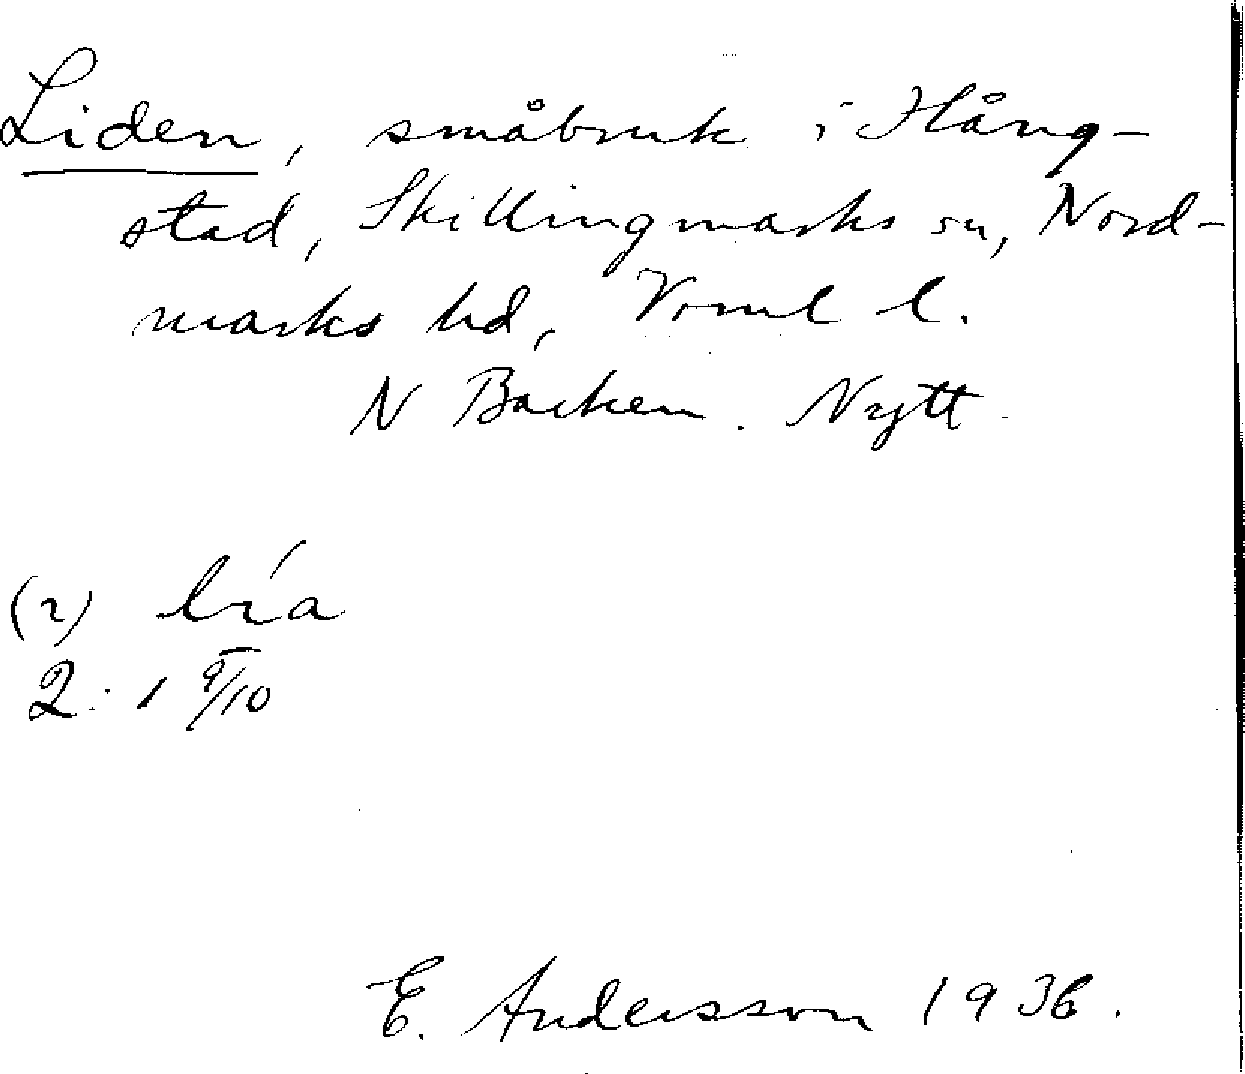 Liden, småbruk i Hång-
stad, Skillingmarks sn, Nord-
marks hd, Vrml l.
N Backen. Nytt.
(2) lía
2: 1 9/10
E. Andersson 1936.